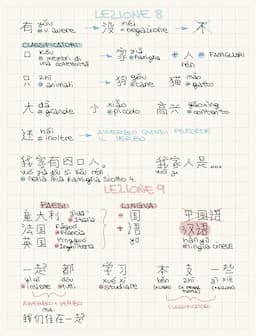 LEZIONE 8
有 yǒu v. avere → 没 méi negazione → 不
CLASSIFICATORI:
口 kǒu membri di una comunità → 家 jiā famiglia 人 FAMILIARI
只 zhī animali → 狗 gǒu cane 猫 māo gatto
大 dà grande 小 xiǎo piccolo 高兴 gāoxìng contento
还 hái inoltre → AVVERBIO QUINDI PRECEDE IL VERBO
我家有四口人。 我家人是...
nella mia famiglia siamo 4.
LEZIONE 9
PAESI LINGUA
意大利 Italia 国 中国语
法国 Fǎguó Francia 语 汉语
英国 Yīngguó Inghilterra hànyǔ lingua cinese
一起 都 学习 本 支 一些
yìqǐ dōu xué xí běn zhī
insieme tutti studiare
AVVERBIO + VERBO CLASSIFICATORI
我们住在一起